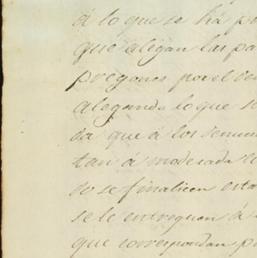 á lo que se há p
que alegan las pa
pregones por el te
alegando lo que s
da que á los
tan á moderada
do se finalicen esta
se le entreguen á
que correspondan p